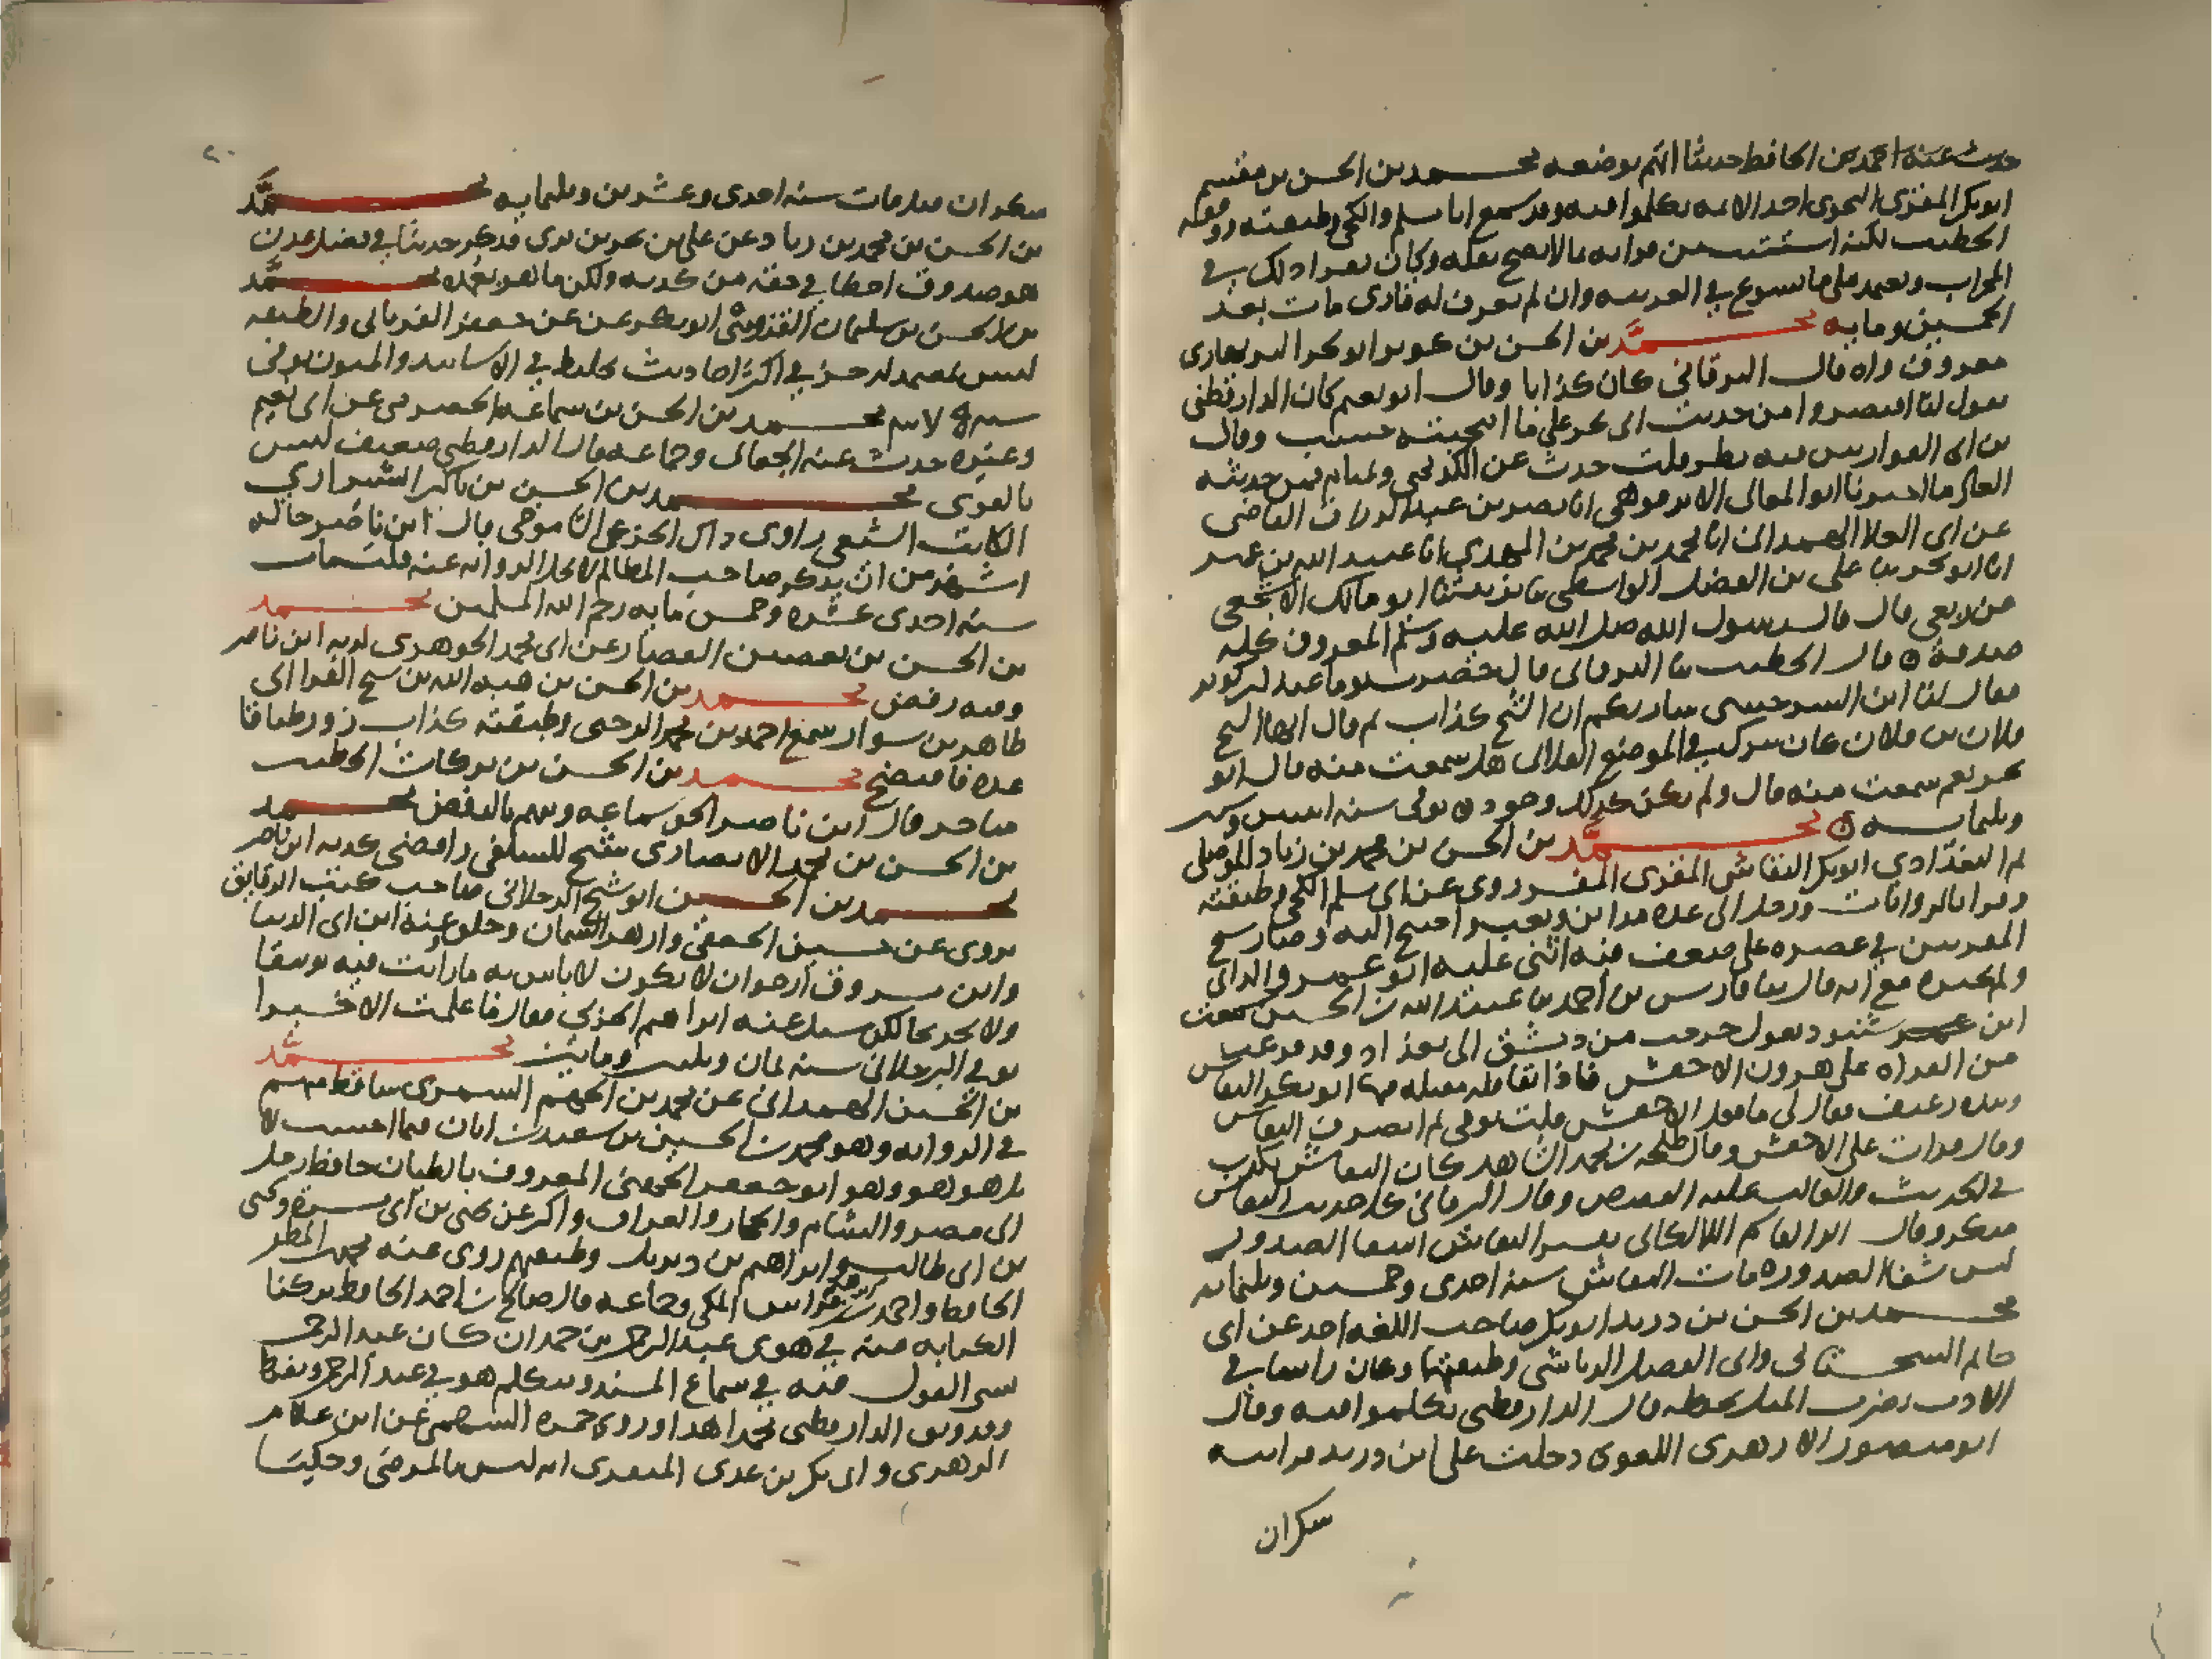 حدث عنه احمد بن الحافظ حديثا اتهم بوضعه محمد بن الحسن بن مقسم
ابو بكر المقرى النحوى احد الائمه تكلموا فيه وقد سمع ابا مسلم والكجى وطبقته ووثقه
الخطيب لكنه استثنى من قراءته مالا يصح نقله وكان يقرا ذلك في
المحراب ويعتمد على ما يسوغ في العربيه وان لم يعرف له قارى مات بعد
الخمسين ومايه محمد بن الحسن بن كوثر ابو بحر البربهارى
معروف واه قال البرقانى كان كذابا وقال ابو نعيم كان الدارقطنى
يقول لنا اقتصروا من حديث ابى بحر على ما انتخبته حسب وقال
بن ابى الفوارس فيه نظر قلت حدث عن الكديمى وتمتام فمن حديثه
العالى ما اخبرنا ابو المعالى الابرقوهى انا نصر بن عبد الرزاق القاضى
عن ابى العلا الهمدانى انا محمد بن محمد بن المهدى انا عبيد الله بن عمر
انا ابو بحر ثنا على بن الفضل الواسطى ثنا يزيد ثنا ابو مالك الاشجعى
عن ربعى قال قال رسول الله صلى الله عليه وسلم المعروف كله
صدقة قال الخطيب ثنا البرقانى قال حضرت يوما عند ابن كوثر
فقال لنا ابن السرخسى ساريكم ان الشيخ كذاب ثم قال ايها الشيخ
فلان بن فلان كان ينزل في الموضع الفلانى هل سمعت منه قال ابو
بحر نعم سمعت منه قال ولم يكن لذلك وجود توفى سنه اثنتين وستين
وثلثمايه محمد بن الحسن بن محمد بن زياد الموصلى
ثم البغدادى ابو بكر النقاش المقرى المفسر روى عن ابى مسلم الكجى وطبقته
وقرا بالروايات ورحل الى عده مداين وتعب واحتيج اليه وصار شيخ
المقرئين في عصره على ضعف فيه اثنى عليه ابو عمرو الدانى
ولم يخبره مع انه قال ثنا فارس بن احمد ثنا عبد الله بن الحسين سمعت
ابن شنبوذ يقول خرجت من دمشق الى بغداد وقد فرغت
من القراه على هرون الاخفش فاذا بقافله مقبله فيها ابو بكر النقاش
وبيده رغيف فقال لى ما فعل الاخفش قلت توفى ثم انصرف النقاش
وقال قرات على الاخفش وقال طلحه بن محمد الشاهد كان النقاش يكذب
في الحديث والغالب عليه القصص وقال البرقانى كل حديث النقاش
منكر وقال ابو القاسم اللالكائى تفسير النقاش اشفا الصدور
ليس شفا الصدور مات النقاش سنه احدى وخمسين وثلثمايه
محمد بن الحسن بن دريد ابو بكر صاحب اللغه اخذ عن ابى
حاتم السجستانى وابى الفضل الرياشى وطبقتهما وكان راسا في
الادب يضرب المثل بحفظه قال الدارقطنى تكلموا فيه وقال
ابو منصور الازهرى اللغوى دخلت على ابن دريد فرايته
سكران
٢٠
سكران فقد مات سنه احدى وعشرين وثلثمايه محمد
بن الحسن بن محمد بن زياد عن على بن بحر بن برى فذكر حديثا في فضل عدن
هو صدوق اخطا في حقه من كذبه ولكن ما هو بعمده محمد
بن الحسن بن سليمان القزوينى ابو بكر عن جعفر الفريابى والطبقه
ليس بعمده له حرز في اكثر احاديث تخليط في الاسانيد والمتون توفى
محمد بن الحسن بن سماعه الحضرمى عن ابى نعيم
وغيره حدث عنه الجعابى وجماعه قال الدارقطنى ضعيف ليس
بالقوى محمد بن الحسن بن باكير الشيرازى
الكاتب الشيعى راوى ذاك الجزء عن التاموجى قال ابن ناصر حاله
اشهر من ان يذكر صاحب المظالم لا تحل الروايه عنه قلت مات
سنه احدى عشره وخمس مايه رحم الله المسلمين محمد
بن الحسن بن القصار عن ابى محمد الجوهرى كذبه ابن ناصر
وفيه رفض محمد بن الحسن بن هبه الله بن شيخ القرا ابى
طاهر بن سوار سمع احمد بن محمد الرحبى وطبقته كذاب زور طباقا
عده فافتضح محمد بن الحسن بن بركات الخطيب
متاخر قال ابن ناصر الحق سماعه ويتهم بالرفض محمد
بن الحسن بن محمد الانصارى شيخ للسلفى رافضى كذبه ابن ناصر
محمد بن الحسين ابو شيخ البرجلانى صاحب كتب الرقايق
يروى عن حسين الجعفى وازهر السمان وخلق وعنه ابن ابى الدنيا
وابن مسروق ارجو ان لا يكون لا باس به ما رايت فيه توثيقا
ولا تجريحا لكن سئل عنه ابراهيم الحربى فقال ما علمت الا خيرا
توفى البرجلانى سنه ثمان وثلثين ومايتين محمد
بن الحسين الهمدانى عن محمد بن الجهم السمرى ساقط متهم
في الروايه وهو محمد بن الحسين بن سعيد بن ابان فيما احسب لا
بل هو هو وهو ابو جعفر المعروف بالطيان حافظ رحل
الى مصر والشام والحجاز والعراق واكثر عن يحيى بن ابى مسره ويحيى
بن ابى طالب وابراهيم بن ديزيل وطبقتهم روى عنه محمد بن المظفر
الحافظ واحمد بن فراس المكى وجماعه قال صالح بن احمد الحافظ تركنا
الكتابه عنه في هوى عبد الرحمن بن حمدان كان عبد الرحمن
سى القول فيه في سماع المسند ويتكلم هو في عبد الرحمن ونفطا
وقد وثق الدارقطنى محمدا هذا وروى حمزه السهمى عن ابن غلام
الزهرى وابى بكر بن عدى المنقرى انه ليس بالمرضى وحكيتا